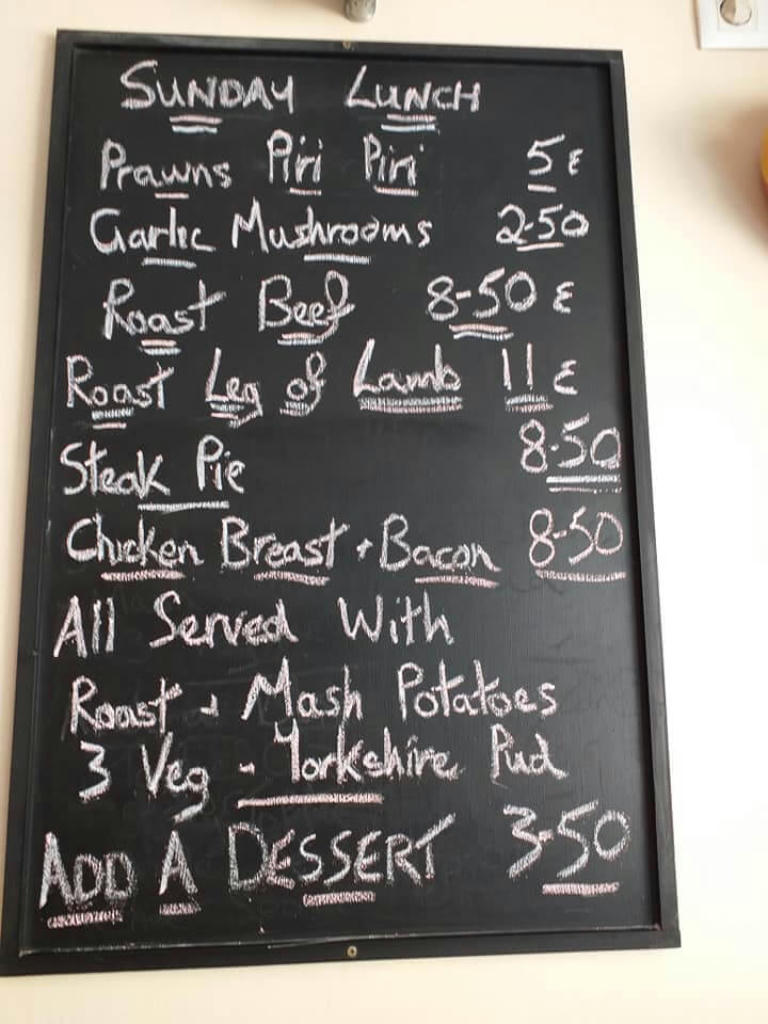 SUNDAY LUNCH
Prawns Piri Piri 5 €
Garlic Mushrooms 2-50
Roast Beef 8-50 €
Roast Leg of Lamb 11 €
Steak Pie 8-50
Chicken Breast + Bacon 8-50
All Served With
Roast + Mash Potatoes
3 Veg - Yorkshire Pud
ADD A DESSERT 3-50